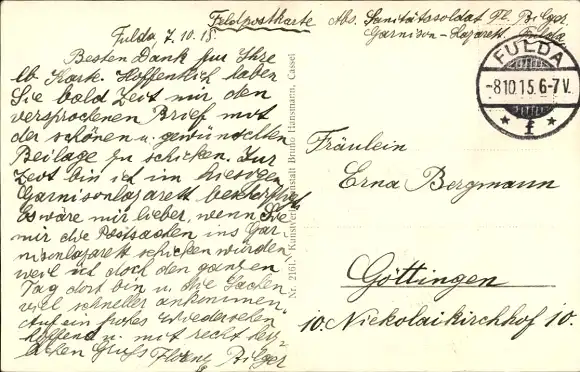 Feldpostkarte
Abs. Sanitätssoldat Fl. Bilger.
Garnison-Lazarett Fulda.
Fulda, 7.10.15
Besten Dank für Ihre
lb Karte. Hoffentlich haben
Sie bald Zeit mir den
versprochenen Brief mit
der schönen u. gewünschten
Beilage zu schicken. Zur
Zeit bin ich im hiesigen
Garnisonlazarett beschäftigt.
Es wäre mir lieber, wenn Sie
mir die Postsachen ins Gar-
nisonlazarett schicken würden,
weil ich doch den ganzen
Tag dort bin u. die Sachen
viel schneller ankommen.
Auf ein frohes Wiedersehen
hoffend u. mit recht herz-
lichen Gruß
Bilger
Nr. 2161. Kunstverlagsanstalt Bruno Hansmann, Cassel
FULDA
-8.10.15.6-7V.
* f *
Fräulein
Erna Bergmann
Göttingen
10. Nickolaikirchhof 10.